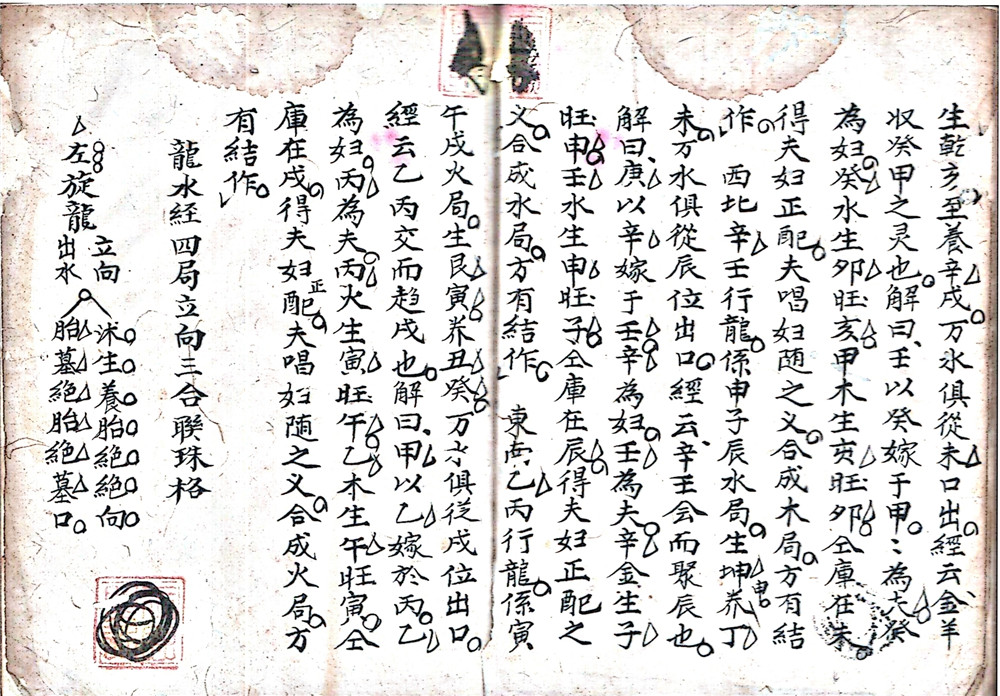 生乾亥至養辛戌万水俱從未口出經云金羊
収癸甲之灵也解曰壬以癸嫁于甲〻為夫癸
為妇癸水生卯旺亥甲木生亥旺卯仝庫在未
得夫妇正配夫唱妇随之义合成木局方有結
作 西北辛壬行龍係申子辰水局生坤申养丁
未万水俱從辰位出口經云辛壬会而聚辰也
解曰庚以辛嫁于壬辛為妇壬為夫辛金生子
旺申壬水生申旺子仝庫在辰得夫妇正配之
义合成水局方有結作 東南乙丙行龍係寅
午戌火局生艮寅养丑癸万水俱従戌位出口
經云乙丙交而趋戌也解曰甲以乙嫁於丙乙
為妇丙為夫丙火生寅旺午乙木生午旺寅仝
庫在戌得夫妇正配夫唱妇随之义合成火局方
有結作
龍水経四局立向三合聯珠格
左旋龍
立向
出水
沐生養胎絕絕向
胎墓絕胎絕墓口